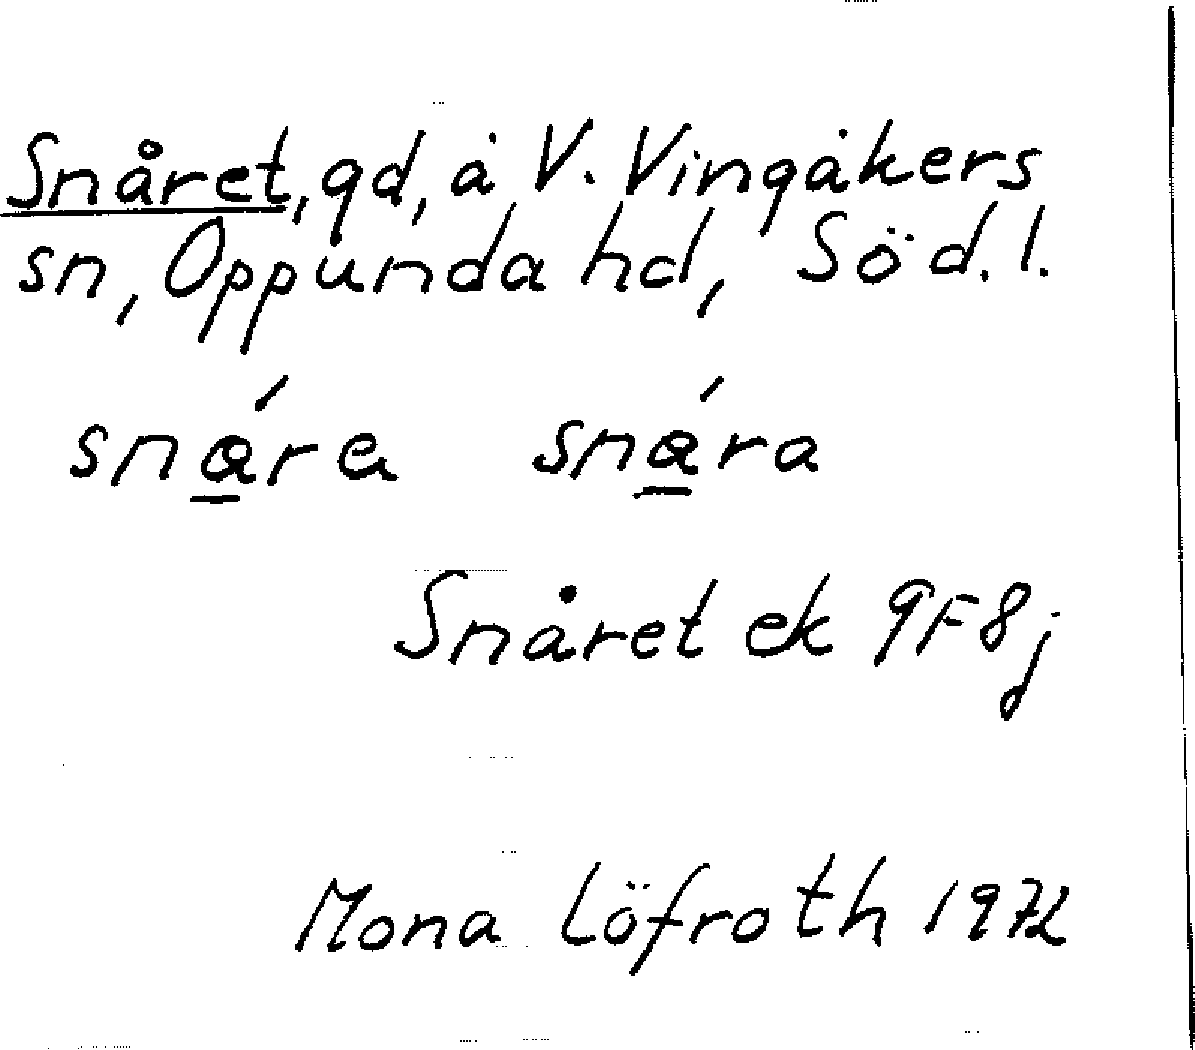 Snåret, gd, å V. Vingåkers
sn, Oppunda hd, Söd. l.
snɑ̱́ra snɑ̱́ra
Snåret ek 9F8j
Mona Löfroth 1972